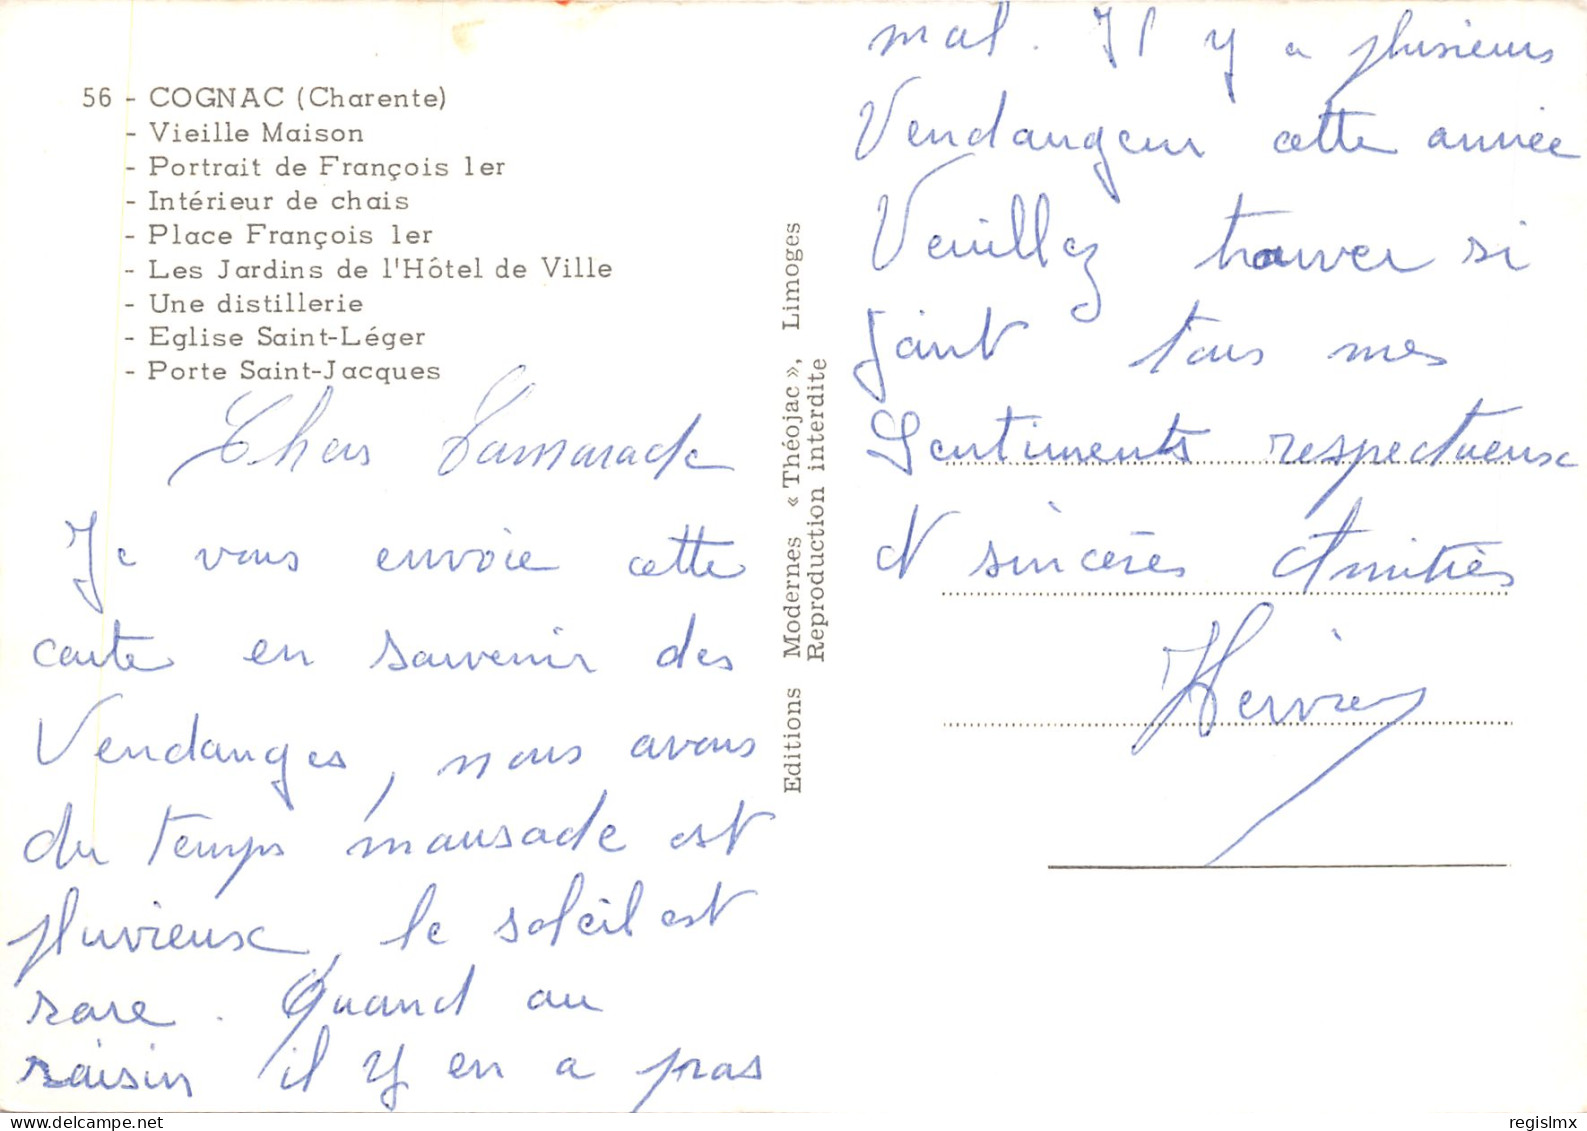 56 - COGNAC (Charente)
- Vieille Maison
- Portrait de François 1er
- Intérieur de chais
- Place François 1er
- Les Jardins de l'Hôtel de Ville
- Une distillerie
- Eglise Saint-Léger
- Porte Saint-Jacques
Chers Camarade
Je vous envoie cette
carte en souvenir des
Vendanges, nous avons
du temps mausade est
pluvieux, le soleil est
rare. Quand au
raisin il y en a pas
Editions Modernes « Théojac », Limoges
Reproduction interdite
mal. Il y a plusieurs
Vendangeur cette année
Veuillez trouver si
joint tous mes
Sentiments respectueux
et sincères Amitiés
regislmx